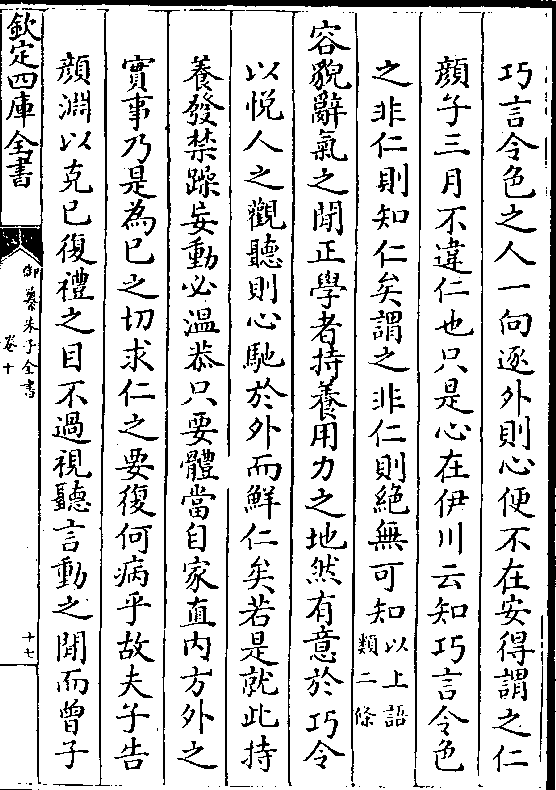 巧言令色之人一向逐外則心便不在安得謂之仁
顔子三月不違仁也只是心在伊川云知巧言令色
之非仁則知仁矣謂之非仁則絶無可知以上語類二條
容貌辭氣之間正學者持養用力之地然有意於巧令
以悅人之觀聽則心馳於外而鮮仁矣若是就此持
養發禁躁妄動必溫恭只要體當自家直内方外之
實事乃是為己之切求仁之要復何病乎故夫子告
顔淵以克己復禮之目不過視聽言動之間而曾子
欽定四庫全書
御纂朱子全書
卷十
十七